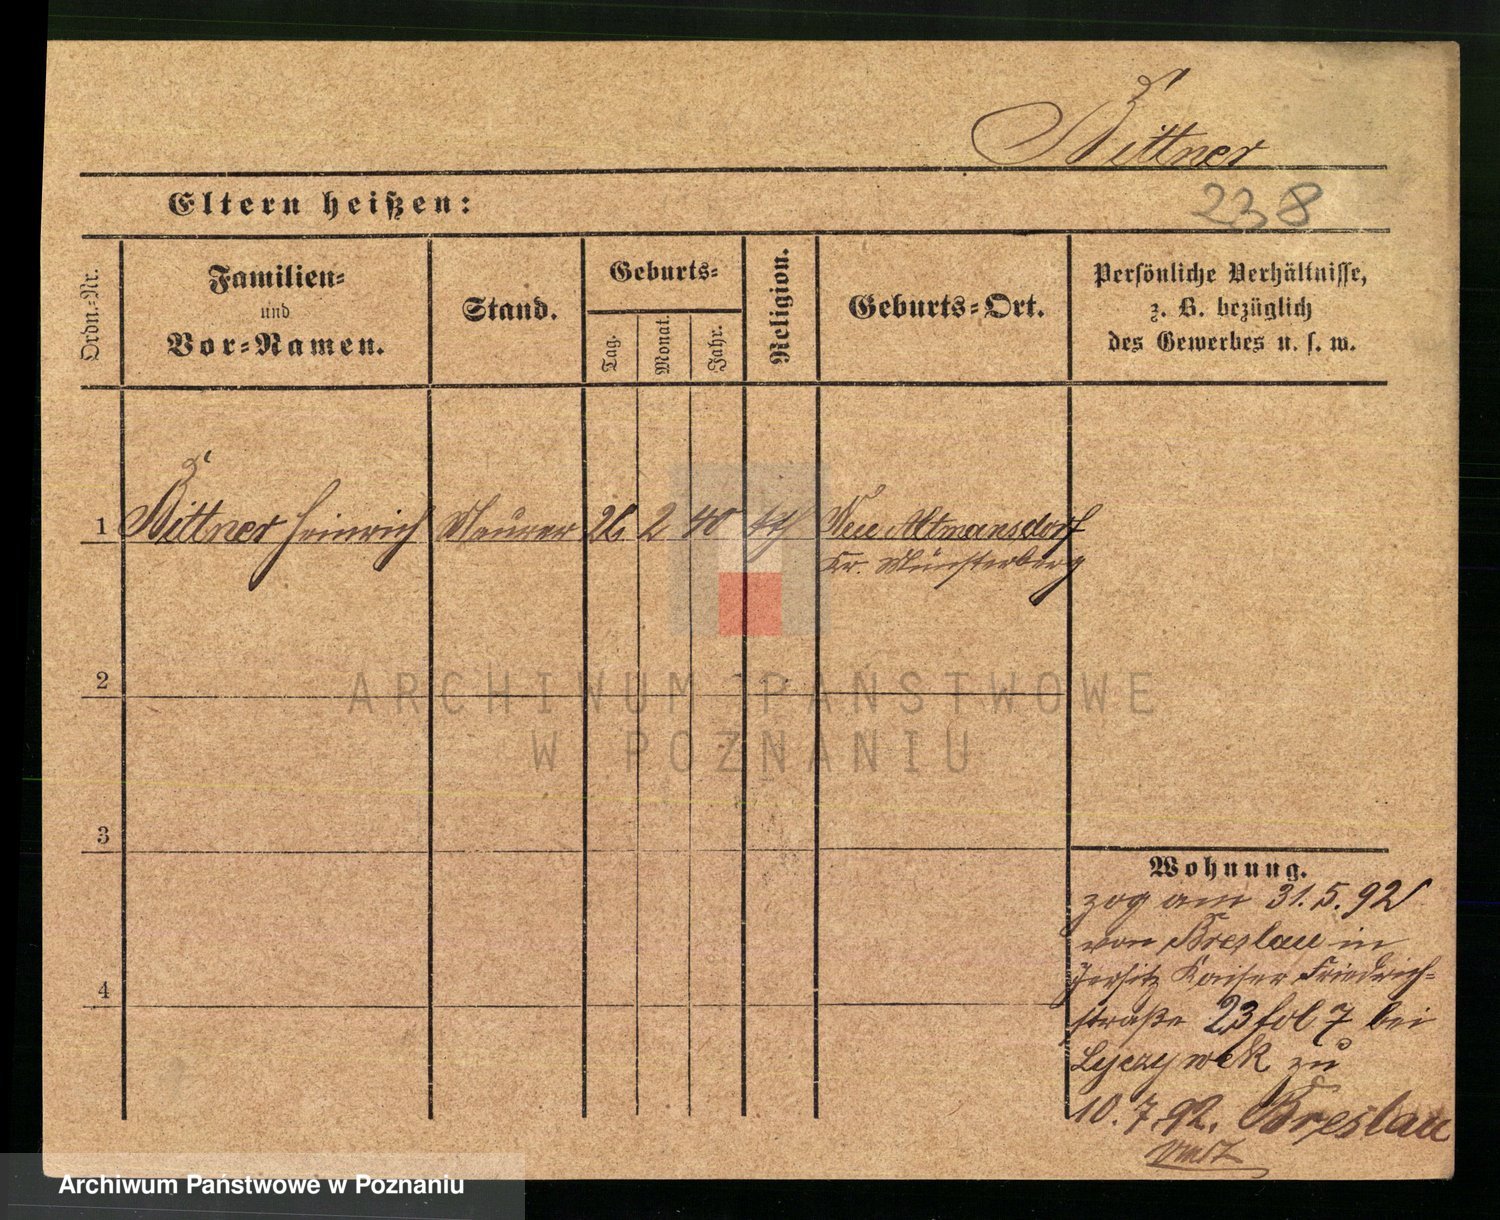 Bittner
238
Eltern heißen:
Ordn.-Nr.
Familien-
und
Vor-Namen.
Stand.
Geburts-
Tag.
Monat.
Jahr.
Religion.
Geburts-Ort.
Persönliche Verhältnisse,
z. B. bezüglich
des Gewerbes u. s. w.
1 Bittner Heinrich Maurer 26 2 40 kth Neu Altmansdorf
Kr. Münsterberg
2
ARCHIWUM PAŃSTWOWE
W POZNANIU
3
Wohnung.
zog am 31.5.92
von Breslau in
Jersitz Kaiser Friedrich-
straße 23 fol 7 bei
zu
4
10.7.92. Breslau
Archiwum Państwowe w Poznaniu